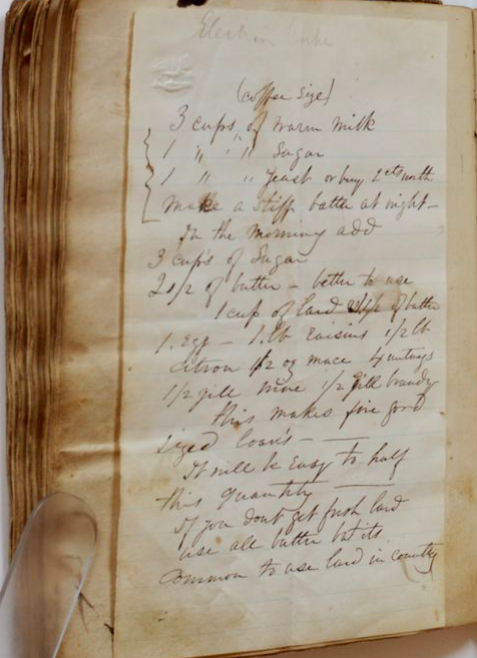 Election Cake
(coffee size)
3 cups of warm milk
1 " " " Sugar
1 " " yeast or buy 2cts worth
make a stiff batter at night -
In the morning add
3 cups of Sugar
2 1/2 of butter - better to use
1 cup of lard 1/2 of butter
1. Egg - 1. lb raisins 1/2 lb
citron 1/2 oz mace 4 nutmegs
1/2 gill wine 1/2 gill brandy
this makes five good
sized loaves -
It will be easy to half
this quantity
If you dont get fresh lard
use all butter but its
common to use lard in country